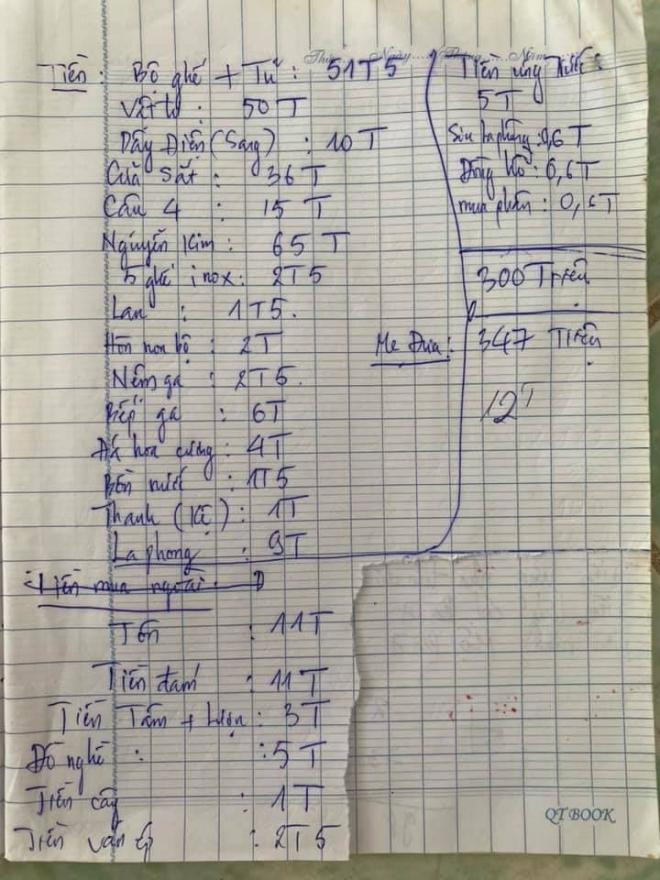 Thứ......Ngày......Tháng......Năm......
Tiền: Bộ ghế + Tủ : 51T5
Vật tư : 50 T
Dây Điện (Sang) : 10 T
Cửa Sắt : 36 T
Cầu 4 : 15 T
Nguyễn Kim : 65 T
5 ghế inox : 2T5
Lan : 1T5.
Hòn non bộ : 2T
Nệm ga : 2T5.
Bếp ga : 6T
Đá hoa cương : 4T
Bồn nước : 1T5
Thanh (Kệ) : 1T
La phong : 9T
Tiền mua ngoài
Tôn : 11T
Tiền đám : 11 T
Tiền Tấm + : 3T
Đồ nghề : 5 T
Tiền cây : 1 T
Tiền ván ép : 2T5
Tiền ứng trước :
5T
Sửa la phông : 0,6T
Đồng hồ : 0,6T
mua phân : 0,6T
300 Triệu
Mẹ Đưa : 347 Triệu
12T
QT BOOK